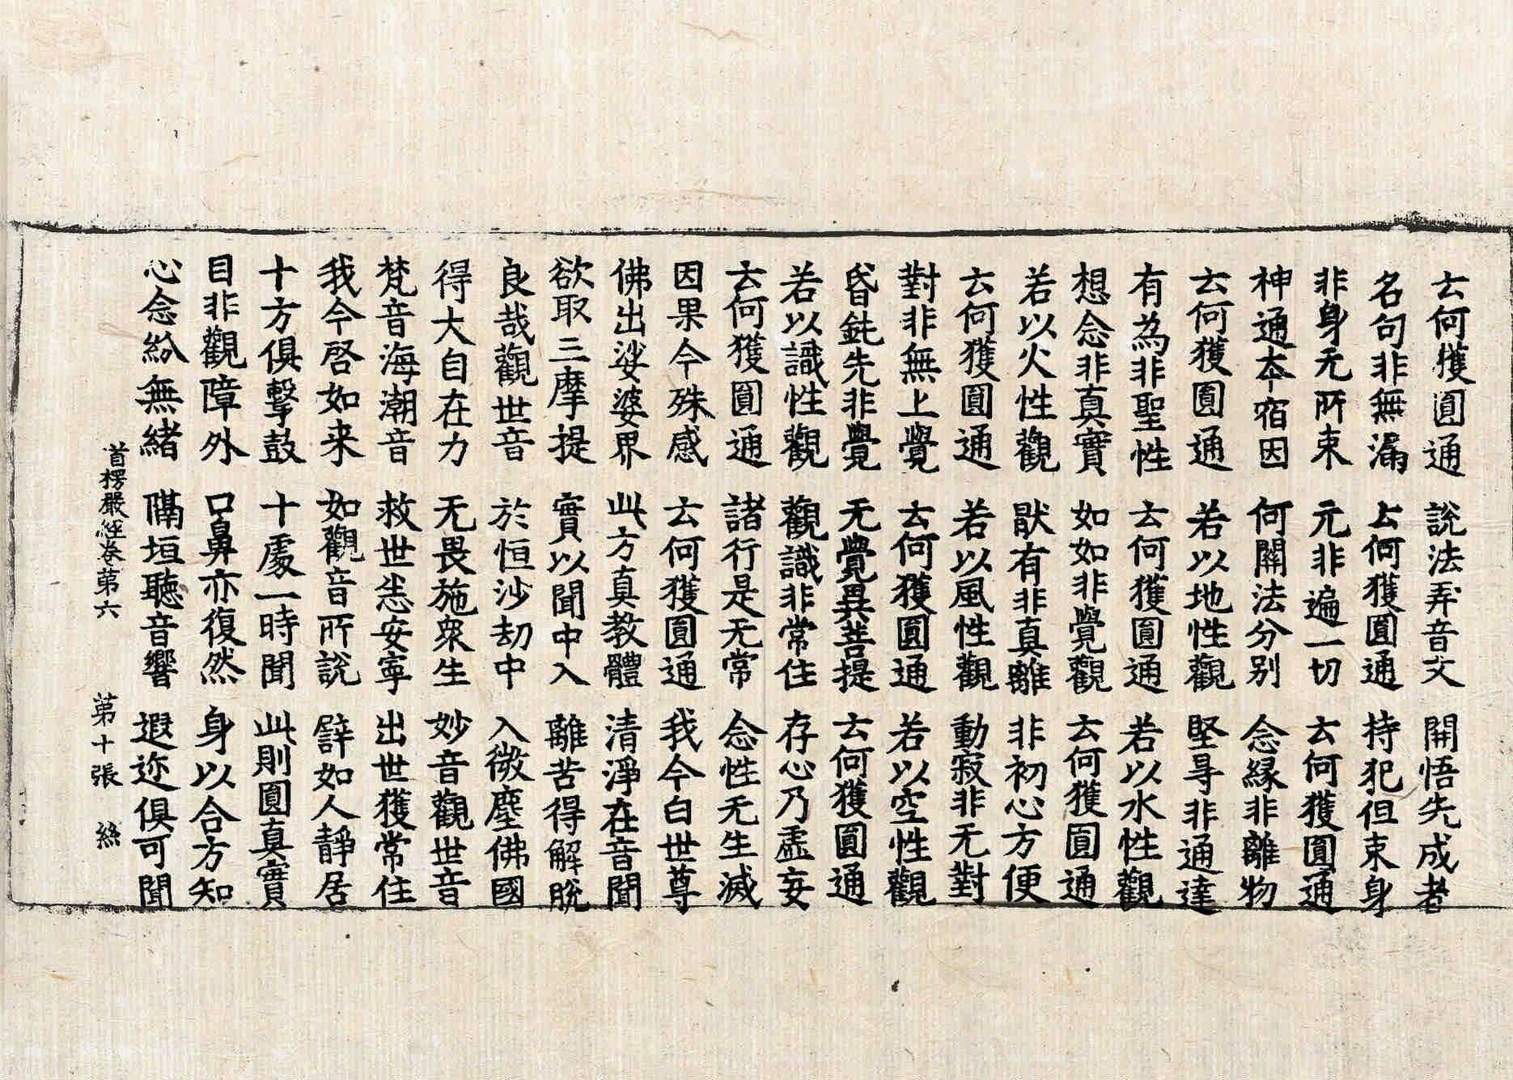 云何獲圓通 說法弄音文 開悟先成者
名句非無漏 云何獲圓通 持犯但束身
非身无所束 元非遍一切 云何獲圓通
神通本宿因 何關法分別 念緣非離物
云何獲圓通 若以地性觀 堅㝵非通達
有為非聖性 云何獲圓通 若以水性觀
想念非真實 如如非覺觀 云何獲圓通
若以火性觀 猒有非真離 非初心方便
云何獲圓通 若以風性觀 動寂非无對
對非無上覺 云何獲圓通 若以空性觀
昏鈍先非覺 无覺異菩提 云何獲圓通
若以識性觀 觀識非常住 存心乃虛妄
云何獲圓通 諸行是无常 念性无生滅
因果今殊感 云何獲圓通 我今白世尊
佛出娑婆界 此方真教體 清淨在音聞
欲取三摩提 實以聞中入 離苦得解脫
良哉觀世音 於恒沙劫中 入微塵佛國
得大自在力 无畏施衆生 妙音觀世音
梵音海潮音 救世悉安寧 出世獲常住
我今啓如来 如觀音所說 辟如人靜居
十方俱擊鼓 十處一時聞 此則圓真實
目非觀障外 口鼻亦復然 身以合方知
心念紛無緒 隔垣聽音響 遐迩俱可聞
首楞嚴經卷第六 第十張 絲